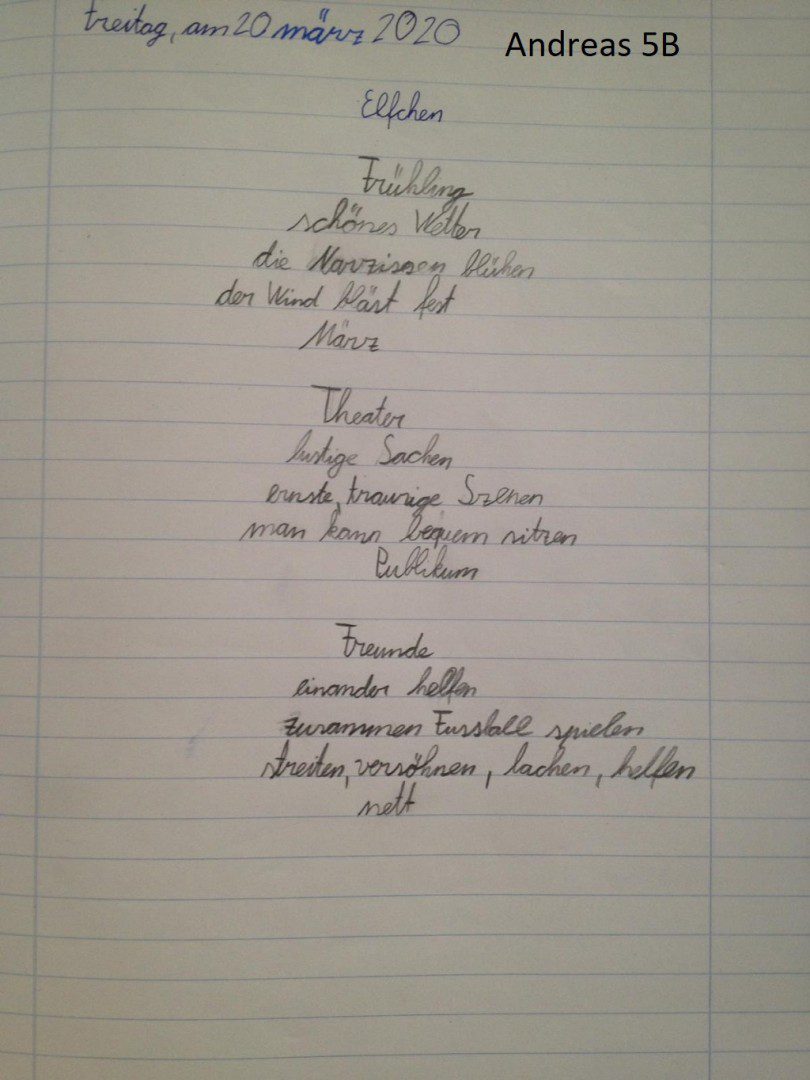 Freitag, am 20 märz 2020
Andreas 5B
Elfchen
Frühling
schönes Wetter
die Narzissen blühen
der Wind bläst fest
März
Theater
lustige Sachen
ernste, traurige Szenen
man kann bequem sitzen
Publikum
Freunde
einander helfen
zusammen Fussball spielen
streiten, versöhnen, lachen, helfen
nett